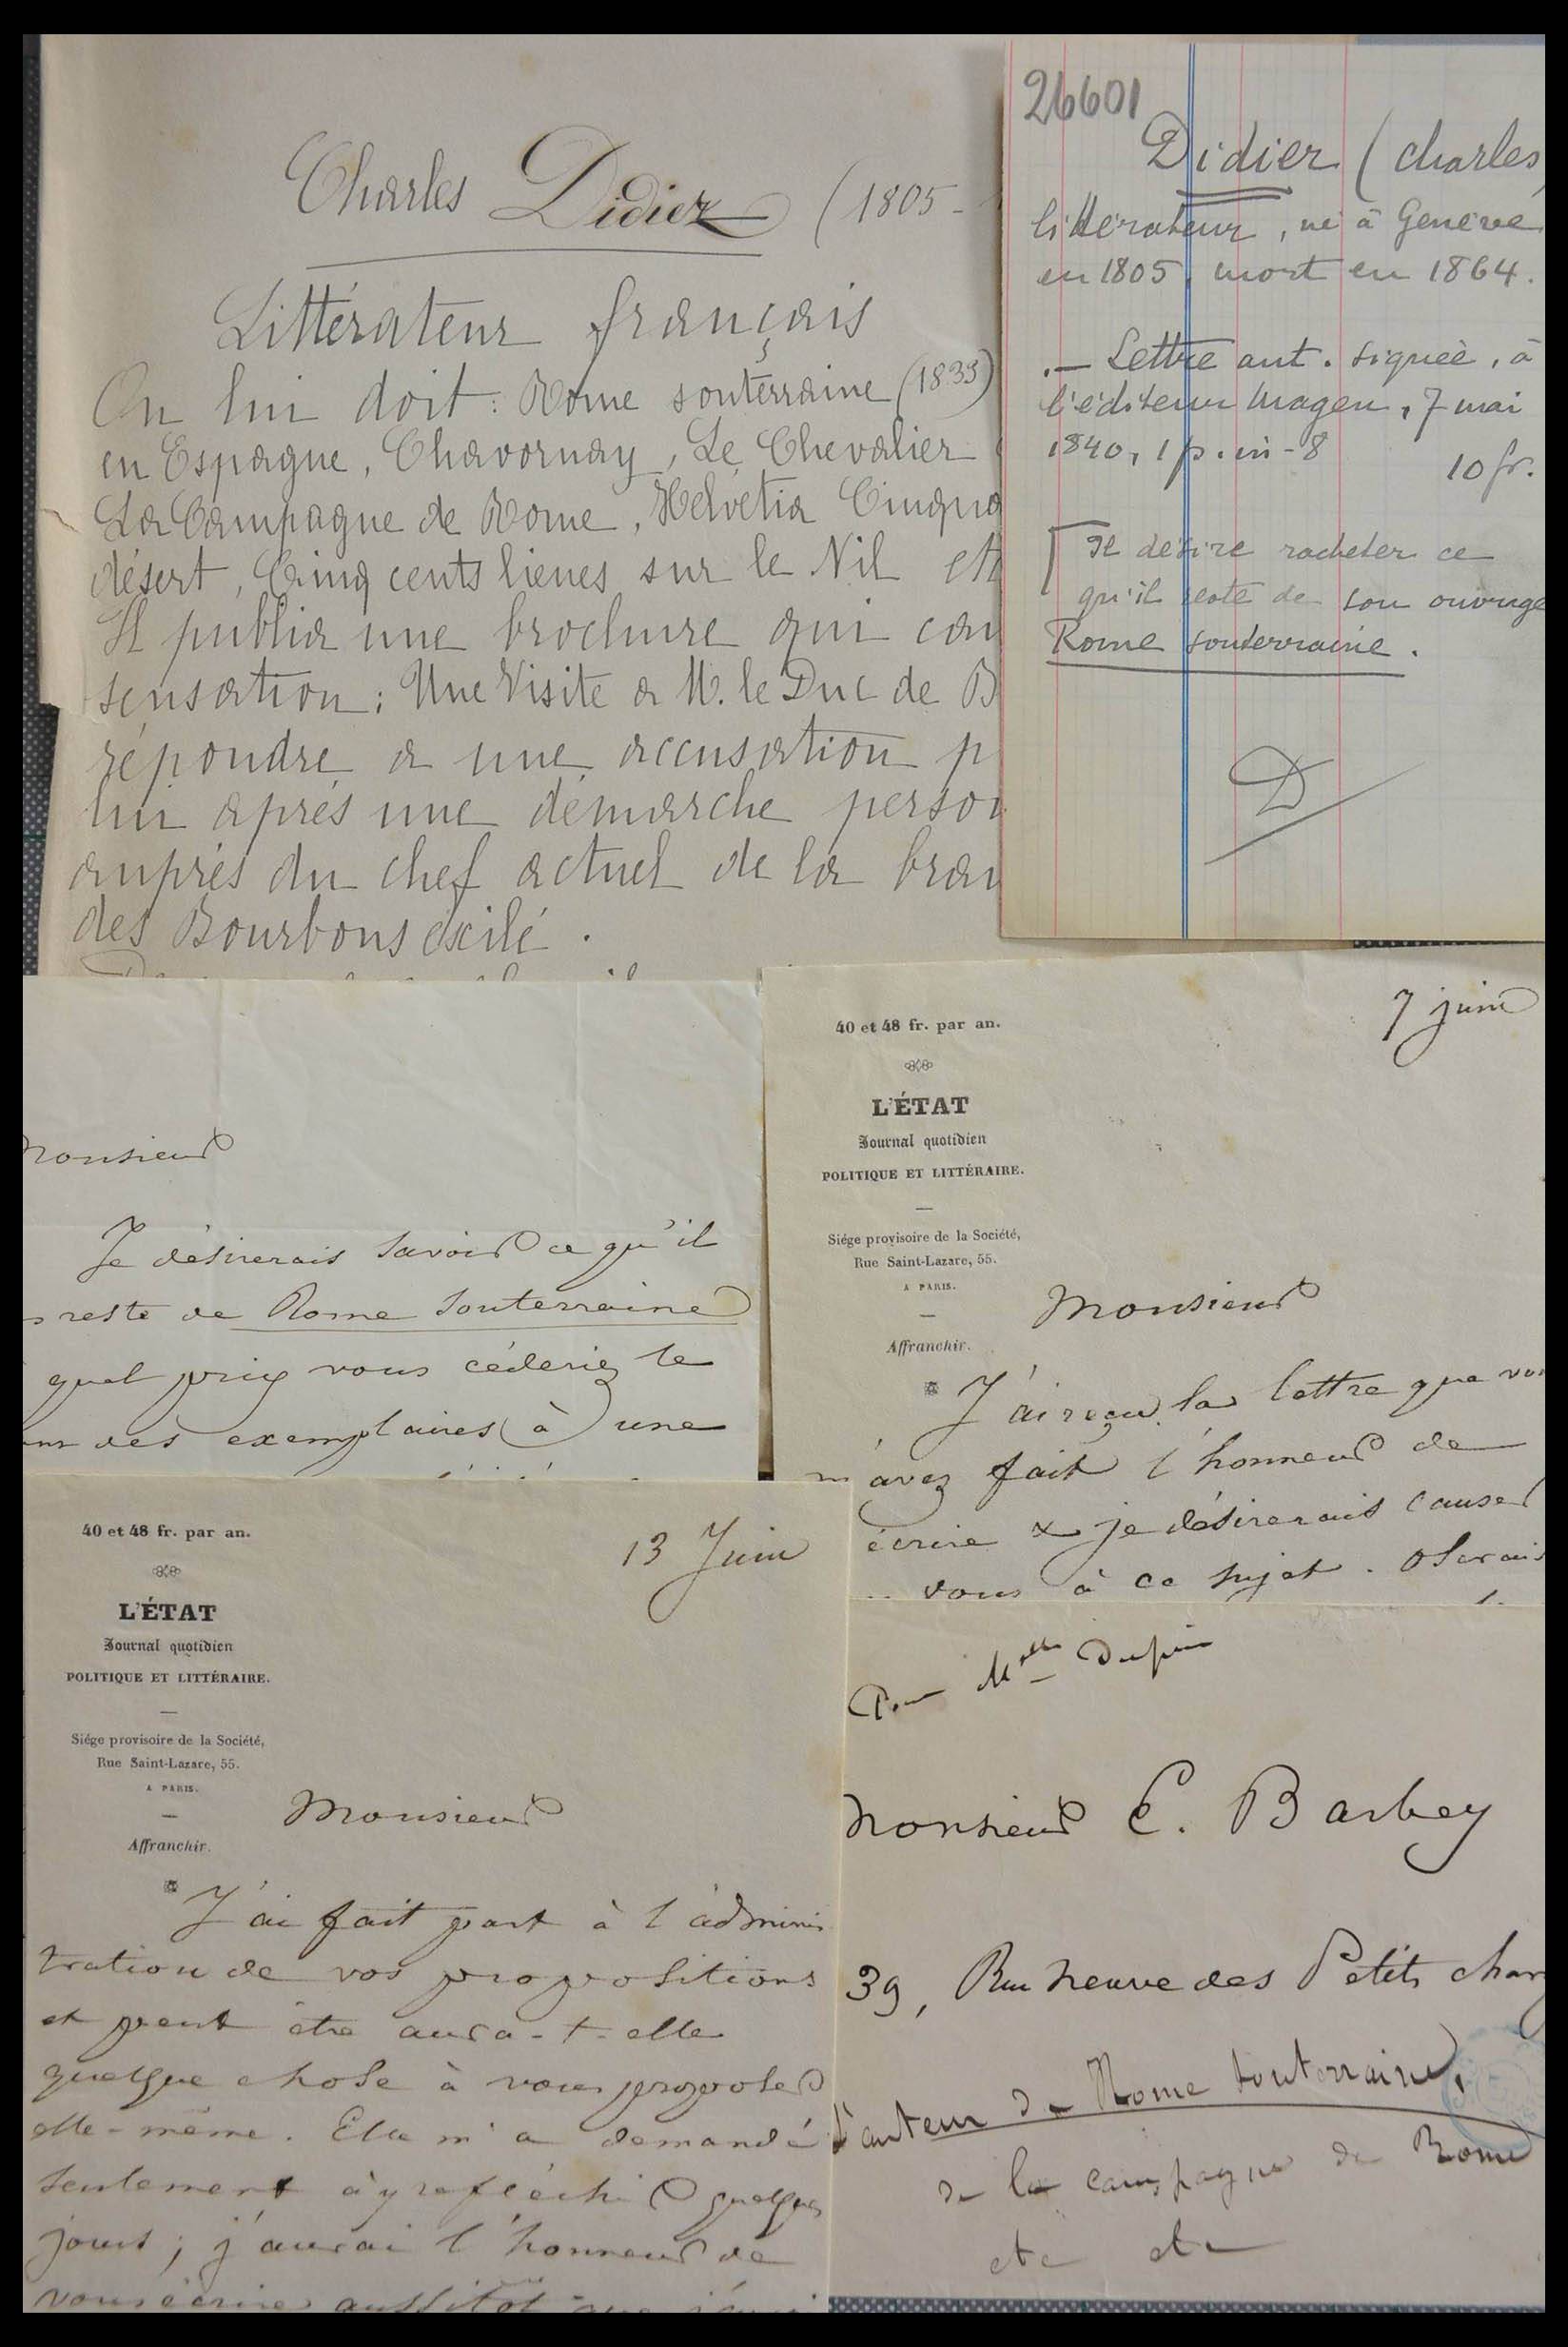 Charles Didier (1805 -
Littérateur français
On lui doit : Rome souterraine (1833)
en Espagne, Chavornay, Le Chevalier
La Campagne de Rome, Helvetia Cinqua
désert, Cinq cents lieues sur le Nil et
Il publia une brochure qui cau
sensation : Une Visite a M. le Duc de B
répondre a une accusation p
lui aprés une démarche person
auprés du chef actuel de la bran
des Bourbons éxilé .
26601
Didier (charles
littérateur, né à Genève
en 1805, mort en 1864.
.— Lettre aut. signée, à
l'éditeur Magen, 7 mai
1840, 1 p. in-8
10 fr.
Il desire racheter ce
qu'il reste de son ouvrage
Rome souterraine.
D
Monsieur
Je désirerais savoir ce qu'il
reste de Rome Souterraine
quel prix vous céderiez le
des exemplaires à une
7 juin
40 et 48 fr. par an.
L'ÉTAT
Journal quotidien
POLITIQUE ET LITTÉRAIRE.
Siége provisoire de la Société,
Rue Saint-Lazare, 55.
A PARIS.
Affranchir.
Monsieur
J'ai reçu la lettre que vou
m'avez fait l'honneur de
écrire & je désirerais causer
vous à ce sujet. Oserais
13 Juin
40 et 48 fr. par an.
L'ÉTAT
Journal quotidien
POLITIQUE ET LITTÉRAIRE.
Siége provisoire de la Société,
Rue Saint-Lazare, 55.
A PARIS.
Affranchir.
Monsieur
J'ai fait part à l'adminis
tration de vos propositions
et peut être aura-t-elle
quelque chose à vous proposer
elle-même. Elle m'a demandé
seulement à y réfléchir quelques
jours ; j'aurai l'honneur de
vous écrire aussitôt que j'aurai
Pour Melle Dupin
Monsieur E. Barbey
39, Rue neuve des Petits cham
L'auteur de Rome souterraine,
de la campagne de Rome
etc etc